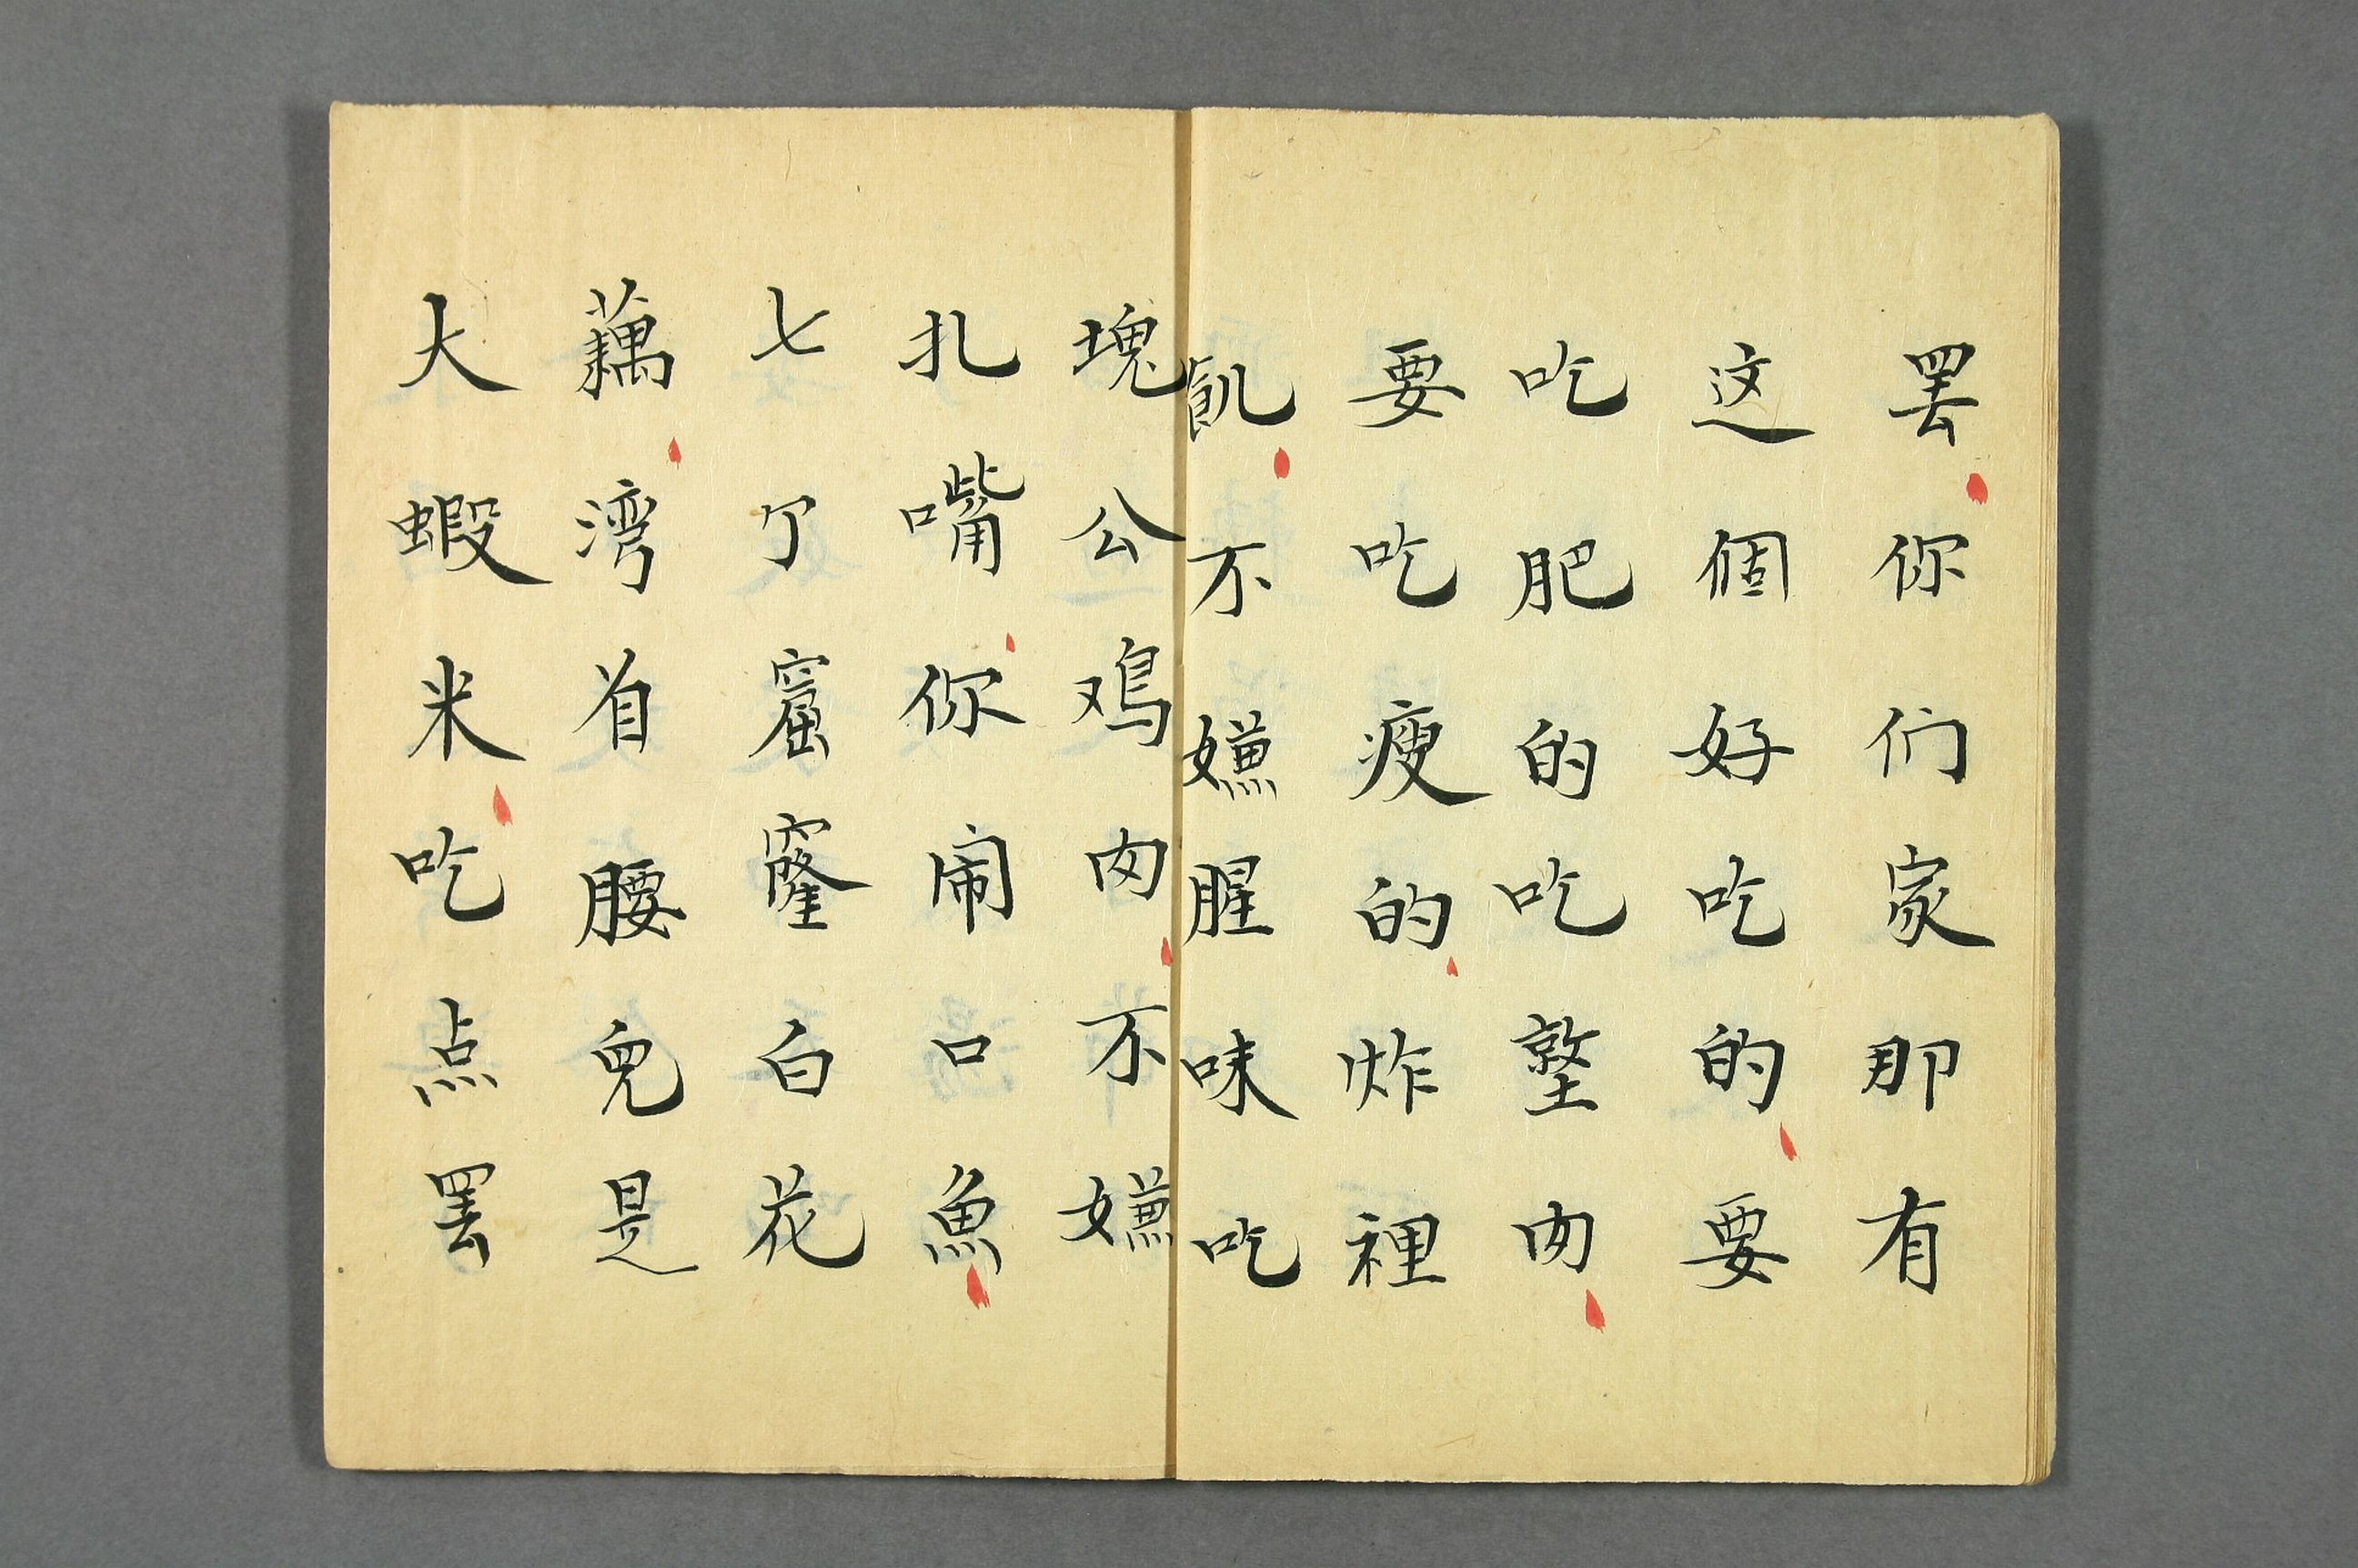 罢你们家那有
这個好吃的要
吃肥的吃墪肉
要吃瘦的炸裡
飢不嫌腥味吃
塊公鸡肉不嫌
扎嘴你闹口魚
七个窟窿白花
藕湾着腰兒是
大蝦米吃点罢